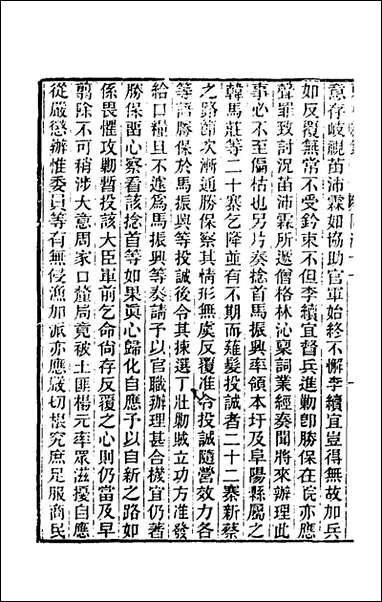 意存岐視苗沛霖如協助官軍始終不懈李續宜豈得無故加兵
如反覆無常不受鈐束不但李續宜督兵進勦卽勝保在皖亦應
聲罪致討況苗沛霖所遞僧格林沁稟詞業經奏聞將來辦理此
事必不至偏枯也另片奏捻首馬振興率領本圩及阜陽縣屬之
韓馬莊等二十寨乞降並有不期而薙髮投誠者二十二寨新蔡
之路節次漸通勝保察其情形無虞反覆准令投誠隨營效力各
等語勝保於馬振興等投誠後令其揀選丁壯勦賊立功方准發
給口糧且不遽為馬振興等奏請予以官職辦理甚合機宜仍著
勝保密心察看該捻首等如果眞心歸化自應予以自新之路如
係畏懼攻勦暫投該大臣軍前乞命尚存反覆之心則仍當及早
翦除不可稍涉大意周家口釐局竟被土匪楊元率眾滋擾自應
從嚴懲辦惟委員等有無侵漁加派亦應嚴切根究庶足服商民